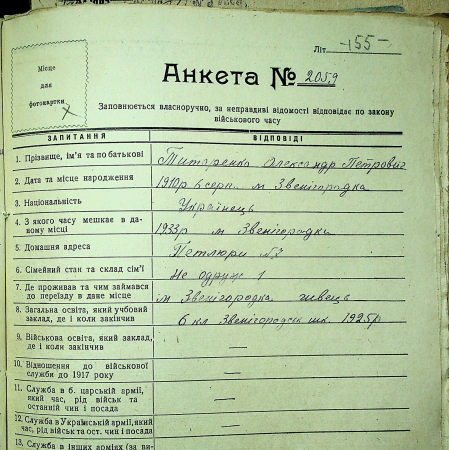 Літ. -155-
Місце
для
фотокартки
Анкета № 2059
Заповнюється власноручно, за неправдиві відомості відповідає по закону
військового часу
ЗАПИТАННЯ ВІДПОВІДІ
1. Прізвище, ім'я та по батькові Титаренко Олександр Петрович
2. Дата та місце народження 1910р 6 серп. м Звенігородка
3. Національність Українець
4. З якого часу мешкає в даному місці 1933р м Звенігородка
5. Домашня адреса Петлюри № 7
6. Сімейний стан та склад сім'ї Не одруж 1
7. Де проживав та чим займався
до переїзду в дане місце м Звенігородка швець
8. Загальна освіта, який учбовий
заклад, де і коли закінчив 6 кл Звенігородск шк. 1925р
9. Військова освіта, який заклад,
де і коли закінчив —
10. Відношення до військової
служби до 1917 року —
11. Служба в б. царській армії,
який час, рід військ та
останній чин і посада —
12. Служба в Українській армії, який
час, рід військ та ост. чин і посада —
13. Служба в інших арміях (за ви-